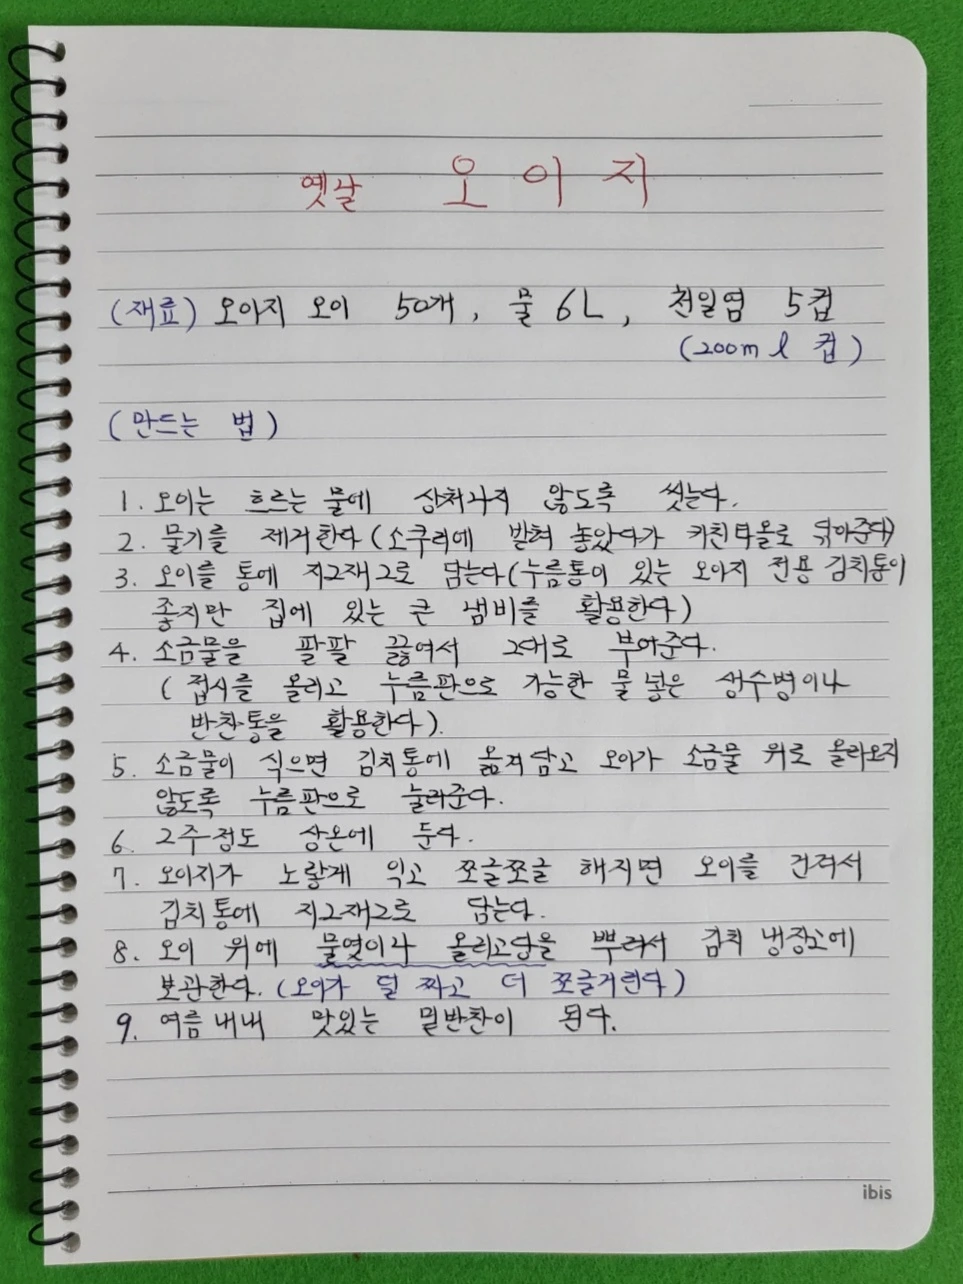 옛날 오이지
(재료) 오이지 오이 50개, 물 6L, 천일염 5컵
(200ml 컵)
(만드는 법)
1. 오이는 흐르는 물에 상처나지 않도록 씻는다.
2. 물기를 제거한다 (소쿠리에 받쳐 놓았다가 키친타올로 닦아준다)
3. 오이를 통에 차곡차곡 담는다 (누름통이 있는 오이지 전용 김치통이
좋지만 집에 있는 큰 냄비를 활용한다)
4. 소금물을 팔팔 끓여서 그대로 부어준다.
(접시를 올리고 누름판으로 가능한 물 넣은 생수병이나
반찬통을 활용한다).
5. 소금물이 식으면 김치통에 옮겨담고 오이가 소금물 위로 올라오지
않도록 누름판으로 눌러준다.
6. 2주정도 상온에 둔다.
7. 오이지가 노랗게 익고 쪼글쪼글 해지면 오이를 건져서
김치통에 차곡차곡 담는다.
8. 오이 위에 물엿이나 올리고당을 뿌려서 김치 냉장고에
보관한다. (오이가 덜 짜고 더 쪼글거린다)
9. 여름내내 맛있는 밑반찬이 된다.
ibis